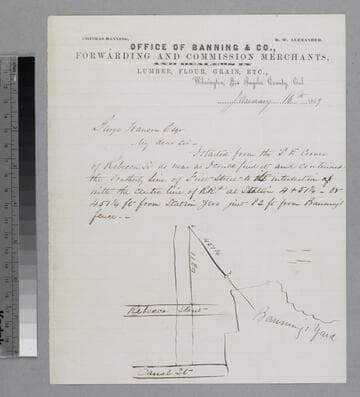 PHINEAS BANNING,
H. W. ALEXANDER.
OFFICE OF BANNING & CO.,
FORWARDING AND COMMISSION MERCHANTS,
AND DEALERS IN
LUMBER, FLOUR, GRAIN, ETC.,
Wilmington, Los Angeles County, Cal.
January 18th 1869
George Hanson Esqr
My dear sir -
I started from the Corner
of Rebecca St as near as I could find it and continued
the Southerly line of First Street to the intersection
with the centre line of RRd at Station 4 + 51½ - or
451½ ft from Station Zero just 82 ft from Banning's
fence -
451½
1180
Rebecca Street
Canal St
Banning's Yard